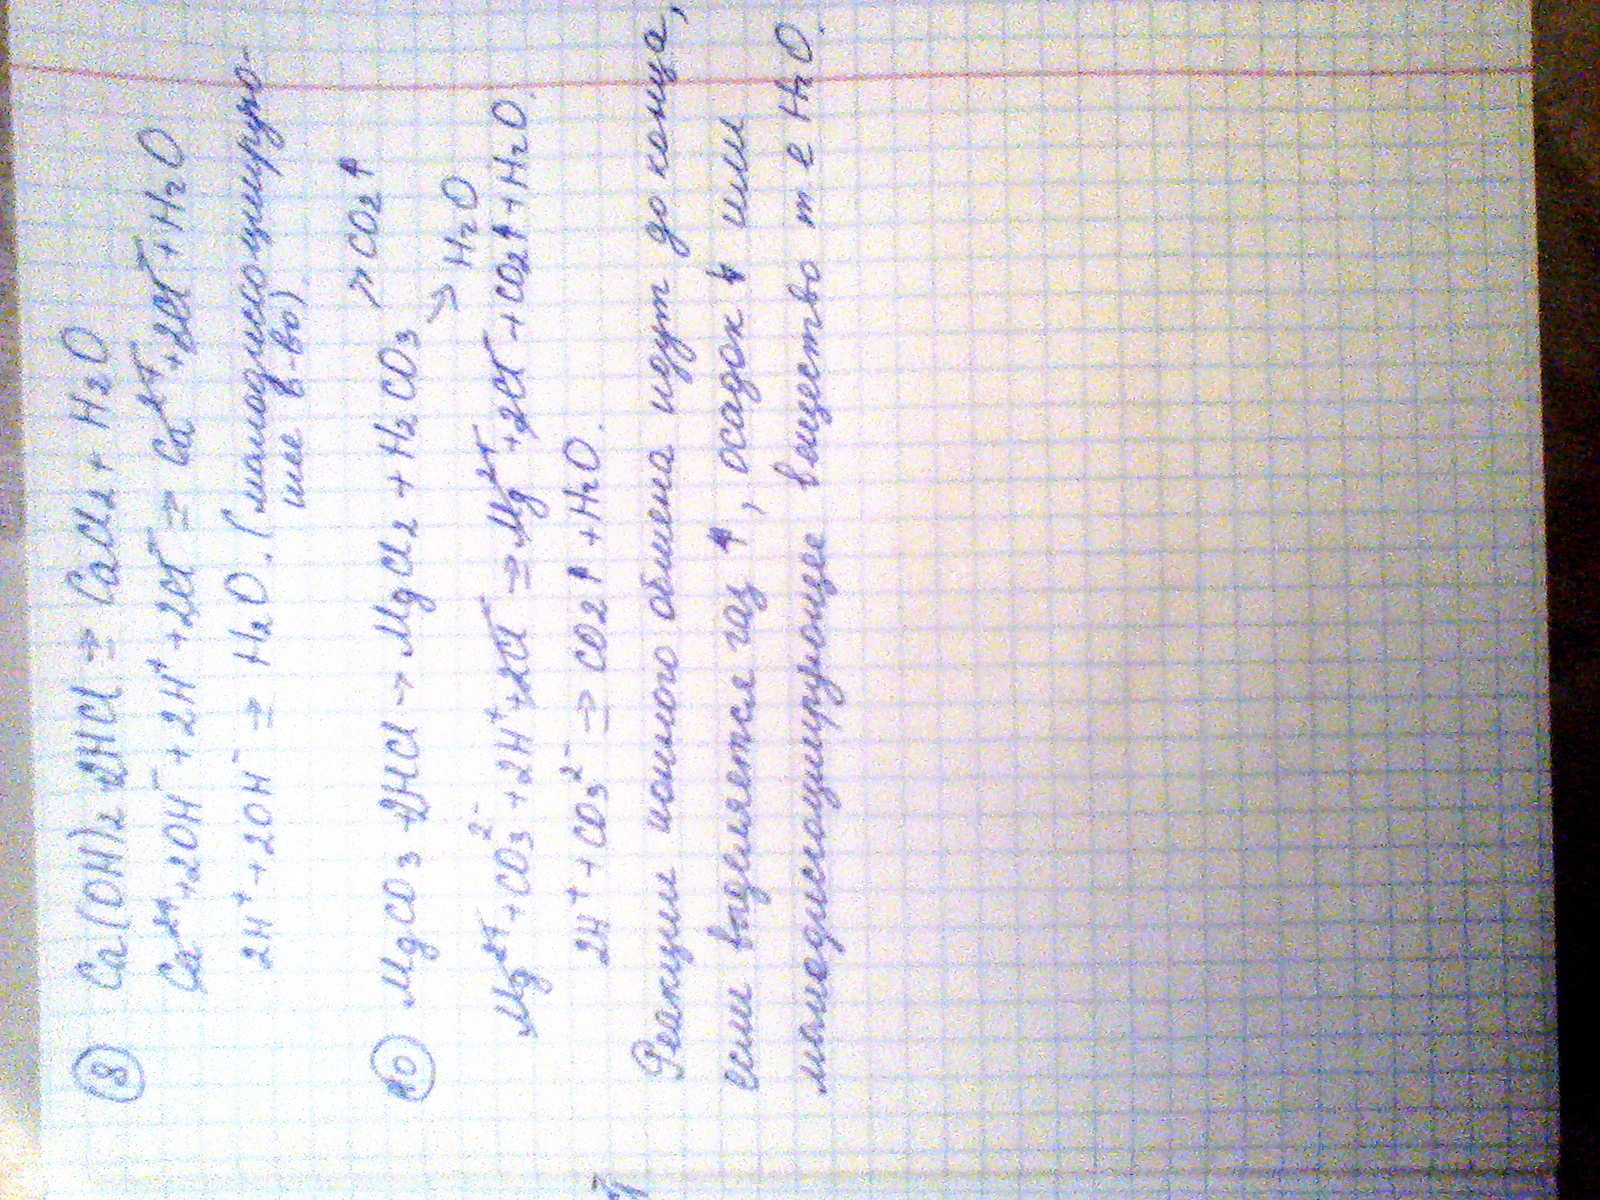 ⑧ Ca(OH)₂ + 2HCl ⇒ CaCl₂ + H₂O
Ca²⁺ + 2OH⁻ + 2H⁺ + 2Cl⁻ ⇒ Ca²⁺ + 2Cl⁻ + H₂O
2H⁺ + 2OH⁻ ⇒ H₂O. (малодиссоциирую-
щее в-во)
⑩ MgCO₃ + 2HCl → MgCl₂ + H₂CO₃ ↗ CO₂↑
↘ H₂O
Mg²⁺ + CO₃²⁻ + 2H⁺ + 2Cl⁻ ⇒ Mg²⁺ + 2Cl⁻ + CO₂↑ + H₂O.
2H⁺ + CO₃²⁻ ⇒ CO₂↑ + H₂O.
Реакции ионного обмена идут до конца,
если выделяется газ ↑, осадок ↓ или
малодиссоциирующее вещество т е H₂O.